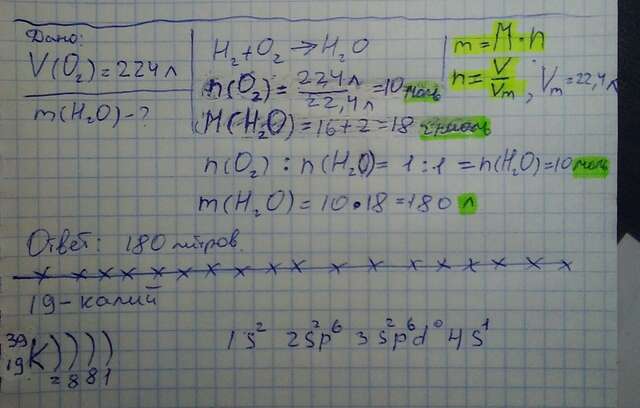 Дано:
V(O₂)=224л
m(H₂O)-?
H₂+O₂→H₂O
n(O₂)=224л/22,4л=10моль
M(H₂O)=16+2=18 г/моль
n(O₂):n(H₂O)=1:1=n(H₂O)=10моль
m(H₂O)=10•18=180 л
m=M·n
n=V/Vm; Vm=22,4л
Ответ: 180 литров.
19-калий
³⁹₁₉K))))
=881
1s² 2s²p⁶ 3s²p⁶d⁰ 4s¹